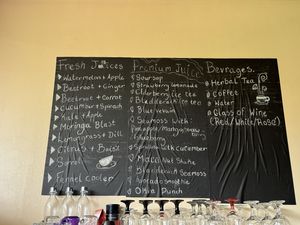 Fresh Juices
Watermelon + Apple
Beetroot + Ginger
Beetroot + Carrot
Cucumber + Spinach
Kale + Apple
Moringa Blast
Lemongrass + Dill
Citrus + Basil
Sorrel
Fennel cooler
Premium Juice
Soursop
Strawberry lemonade
Elderberry ice tea
Bladderwrack ice tea
Blue vervain
Seamoss with:
pineapple/mango/soursop
Spirulina with cucumber
Maca Nut Shake
Bladderwrack Seamoss
Avocado smoothie
Okra Punch
Bevrages.
Herbal Tea
Coffee
Water
Glass of Wine
(Red/White/Rosé)